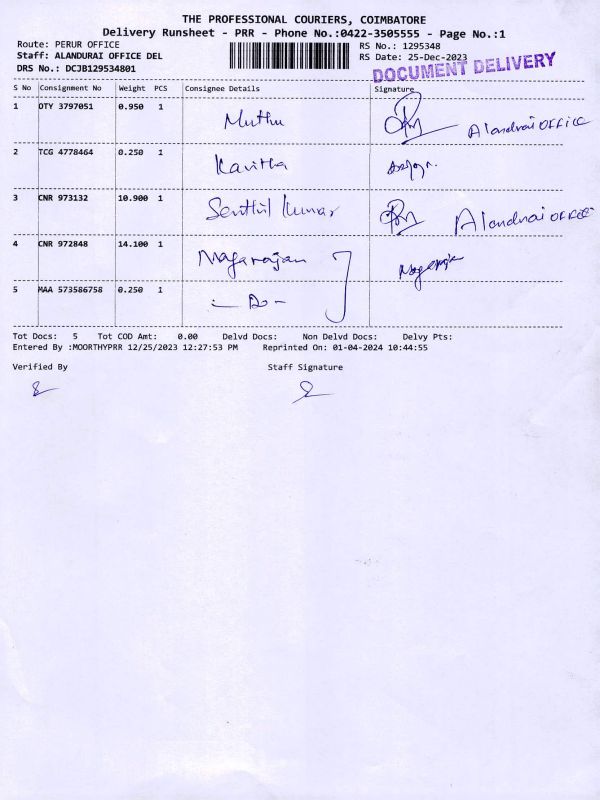 THE PROFESSIONAL COURIERS, COIMBATORE
Delivery Runsheet - PRR - Phone No.:0422-3505555 - Page No.:1
Route: PERUR OFFICE
RS No.: 1295348
Staff: ALANDURAI OFFICE DEL
RS Date: 25-Dec-2023
DRS No.: DCJB129534801
DOCUMENT DELIVERY
S No Consignment No Weight PCS Consignee Details Signature
1 OTY 3797051 0.950 1 Muthu Alandurai OFFICE
2 TCG 4778464 0.250 1 Kavitha
3 CNR 973132 10.900 1 Senthil Kumar Alandurai OFFICE
4 CNR 972848 14.100 1 Nagarajan
5 MAA 573586758 0.250 1 - Do -
Tot Docs: 5 Tot COD Amt: 0.00 Delvd Docs: Non Delvd Docs: Delvy Pts:
Entered By :MOORTHYPRR 12/25/2023 12:27:53 PM Reprinted On: 01-04-2024 10:44:55
Verified By Staff Signature